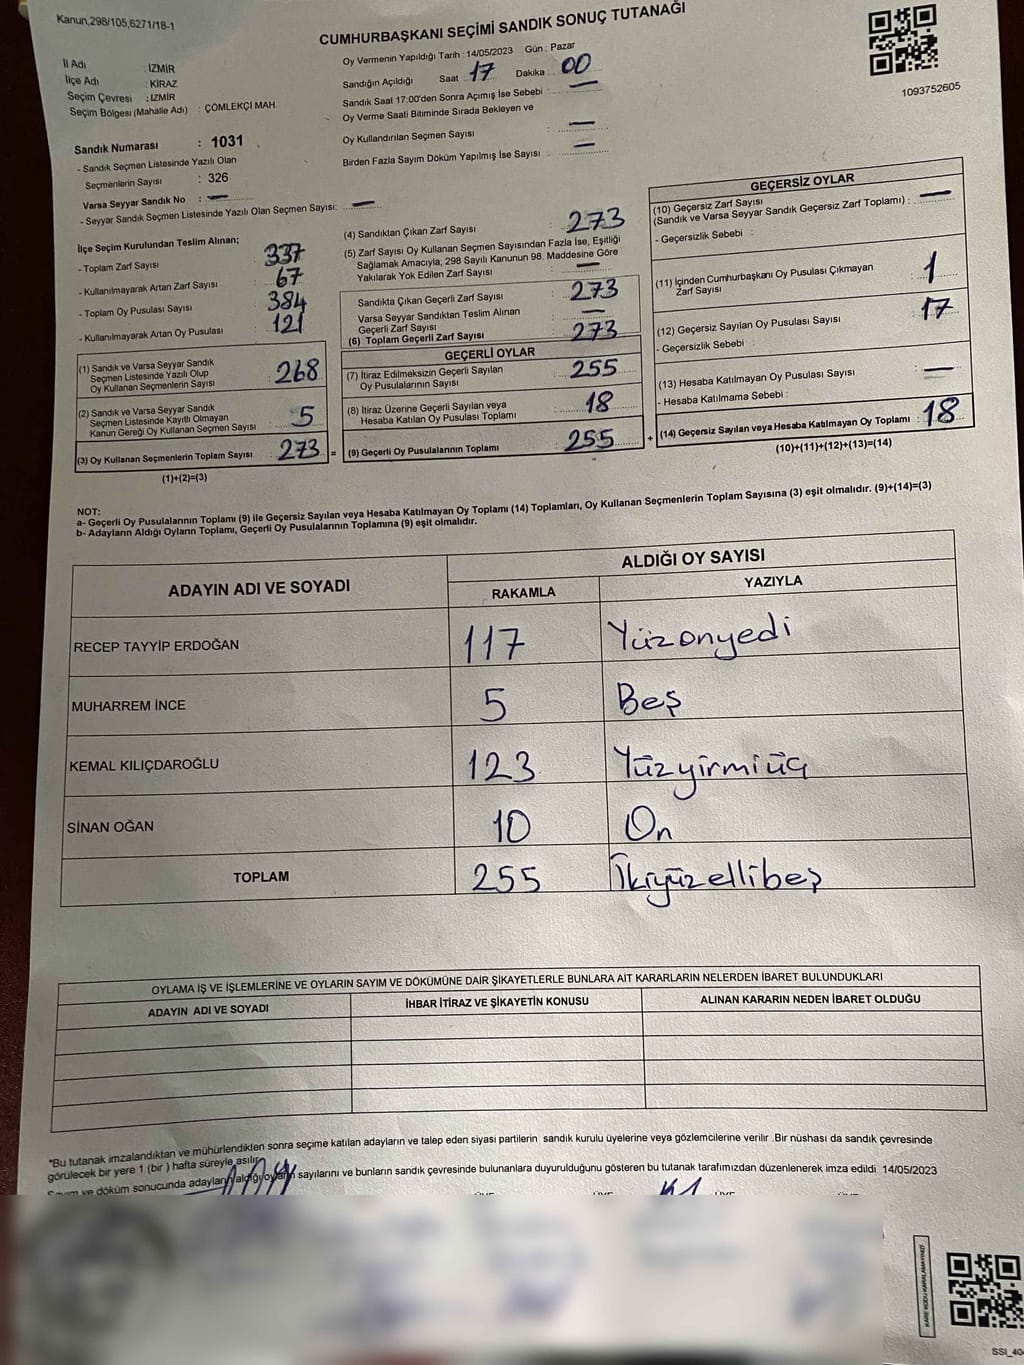 Kanun,298/105,6271/18-1
CUMHURBAŞKANI SEÇİMİ SANDIK SONUÇ TUTANAĞI
1093752605
İl Adı : İZMİR
İlçe Adı : KİRAZ
Seçim Çevresi : İZMİR
Seçim Bölgesi (Mahalle Adı) : ÇÖMLEKÇİ MAH.
Sandık Numarası : 1031
- Sandık Seçmen Listesinde Yazılı Olan
Seçmenlerin Sayısı : 326
Varsa Seyyar Sandık No : —
- Seyyar Sandık Seçmen Listesinde Yazılı Olan Seçmen Sayısı: —
Oy Vermenin Yapıldığı Tarih : 14/05/2023 Gün : Pazar
Sandığın Açıldığı Saat 17 Dakika 00
Sandık Saat 17:00'den Sonra Açımış İse Sebebi : —
Oy Verme Saati Bitiminde Sırada Bekleyen ve
Oy Kullandırılan Seçmen Sayısı : —
Birden Fazla Sayım Döküm Yapılmış İse Sayısı : —
İlçe Seçim Kurulundan Teslim Alınan;
- Toplam Zarf Sayısı : 337
- Kullanılmayarak Artan Zarf Sayısı : 67
- Toplam Oy Pusulası Sayısı : 384
- Kullanılmayarak Artan Oy Pusulası : 121
(1) Sandık ve Varsa Seyyar Sandık
Seçmen Listesinde Yazılı Olup
Oy Kullanan Seçmenlerin Sayısı : 268
(2) Sandık ve Varsa Seyyar Sandık
Seçmen Listesinde Kayıtlı Olmayan
Kanun Gereği Oy Kullanan Seçmen Sayısı : 5
(3) Oy Kullanan Seçmenlerin Toplam Sayısı : 273 =
(1)+(2)=(3)
(4) Sandıktan Çıkan Zarf Sayısı : 273
(5) Zarf Sayısı Oy Kullanan Seçmen Sayısından Fazla İse, Eşitliği
Sağlamak Amacıyla, 298 Sayılı Kanunun 98. Maddesine Göre
Yakılarak Yok Edilen Zarf Sayısı : —
Sandıkta Çıkan Geçerli Zarf Sayısı : 273
Varsa Seyyar Sandıktan Teslim Alınan
Geçerli Zarf Sayısı : —
(6) Toplam Geçerli Zarf Sayısı : 273
GEÇERLİ OYLAR
(7) İtiraz Edilmeksizin Geçerli Sayılan
Oy Pusulalarının Sayısı : 255
(8) İtiraz Üzerine Geçerli Sayılan veya
Hesaba Katılan Oy Pusulası Toplamı : 18
(9) Geçerli Oy Pusulalarının Toplamı : 255 +
GEÇERSİZ OYLAR
(10) Geçersiz Zarf Sayısı
(Sandık ve Varsa Seyyar Sandık Geçersiz Zarf Toplamı) : —
- Geçersizlik Sebebi :
(11) İçinden Cumhurbaşkanı Oy Pusulası Çıkmayan
Zarf Sayısı : 1
(12) Geçersiz Sayılan Oy Pusulası Sayısı : 17
- Geçersizlik Sebebi :
(13) Hesaba Katılmayan Oy Pusulası Sayısı : —
- Hesaba Katılmama Sebebi :
(14) Geçersiz Sayılan veya Hesaba Katılmayan Oy Toplamı : 18
(10)+(11)+(12)+(13)=(14)
NOT:
a- Geçerli Oy Pusulalarının Toplamı (9) ile Geçersiz Sayılan veya Hesaba Katılmayan Oy Toplamı (14) Toplamları, Oy Kullanan Seçmenlerin Toplam Sayısına (3) eşit olmalıdır. (9)+(14)=(3)
b- Adayların Aldığı Oyların Toplamı, Geçerli Oy Pusulalarının Toplamına (9) eşit olmalıdır.
ADAYIN ADI VE SOYADI
ALDIĞI OY SAYISI
RAKAMLA YAZIYLA
RECEP TAYYİP ERDOĞAN 117 Yüzonyedi
MUHARREM İNCE 5 Beş
KEMAL KILIÇDAROĞLU 123 Yüzyirmiüç
SİNAN OĞAN 10 On
TOPLAM 255 İkiyüzellibeş
OYLAMA İŞ VE İŞLEMLERİNE VE OYLARIN SAYIM VE DÖKÜMÜNE DAİR ŞİKAYETLERLE BUNLARA AİT KARARLARIN NELERDEN İBARET BULUNDUKLARI
ADAYIN ADI VE SOYADI İHBAR İTİRAZ VE ŞİKAYETİN KONUSU ALINAN KARARIN NEDEN İBARET OLDUĞU
*Bu tutanak imzalandıktan ve mühürlendikten sonra seçime katılan adayların ve talep eden siyasi partilerin sandık kurulu üyelerine veya gözlemcilerine verilir .Bir nüshası da sandık çevresinde
görülecek bir yere 1 (bir ) hafta süreyle asılır.
Sayım ve döküm sonucunda adayların aldığı oyların sayılarını ve bunların sandık çevresinde bulunanlara duyurulduğunu gösteren bu tutanak tarafımızdan düzenlenerek imza edildi 14/05/2023
KARE KODU KARALAMAYINIZ!
SSI_40